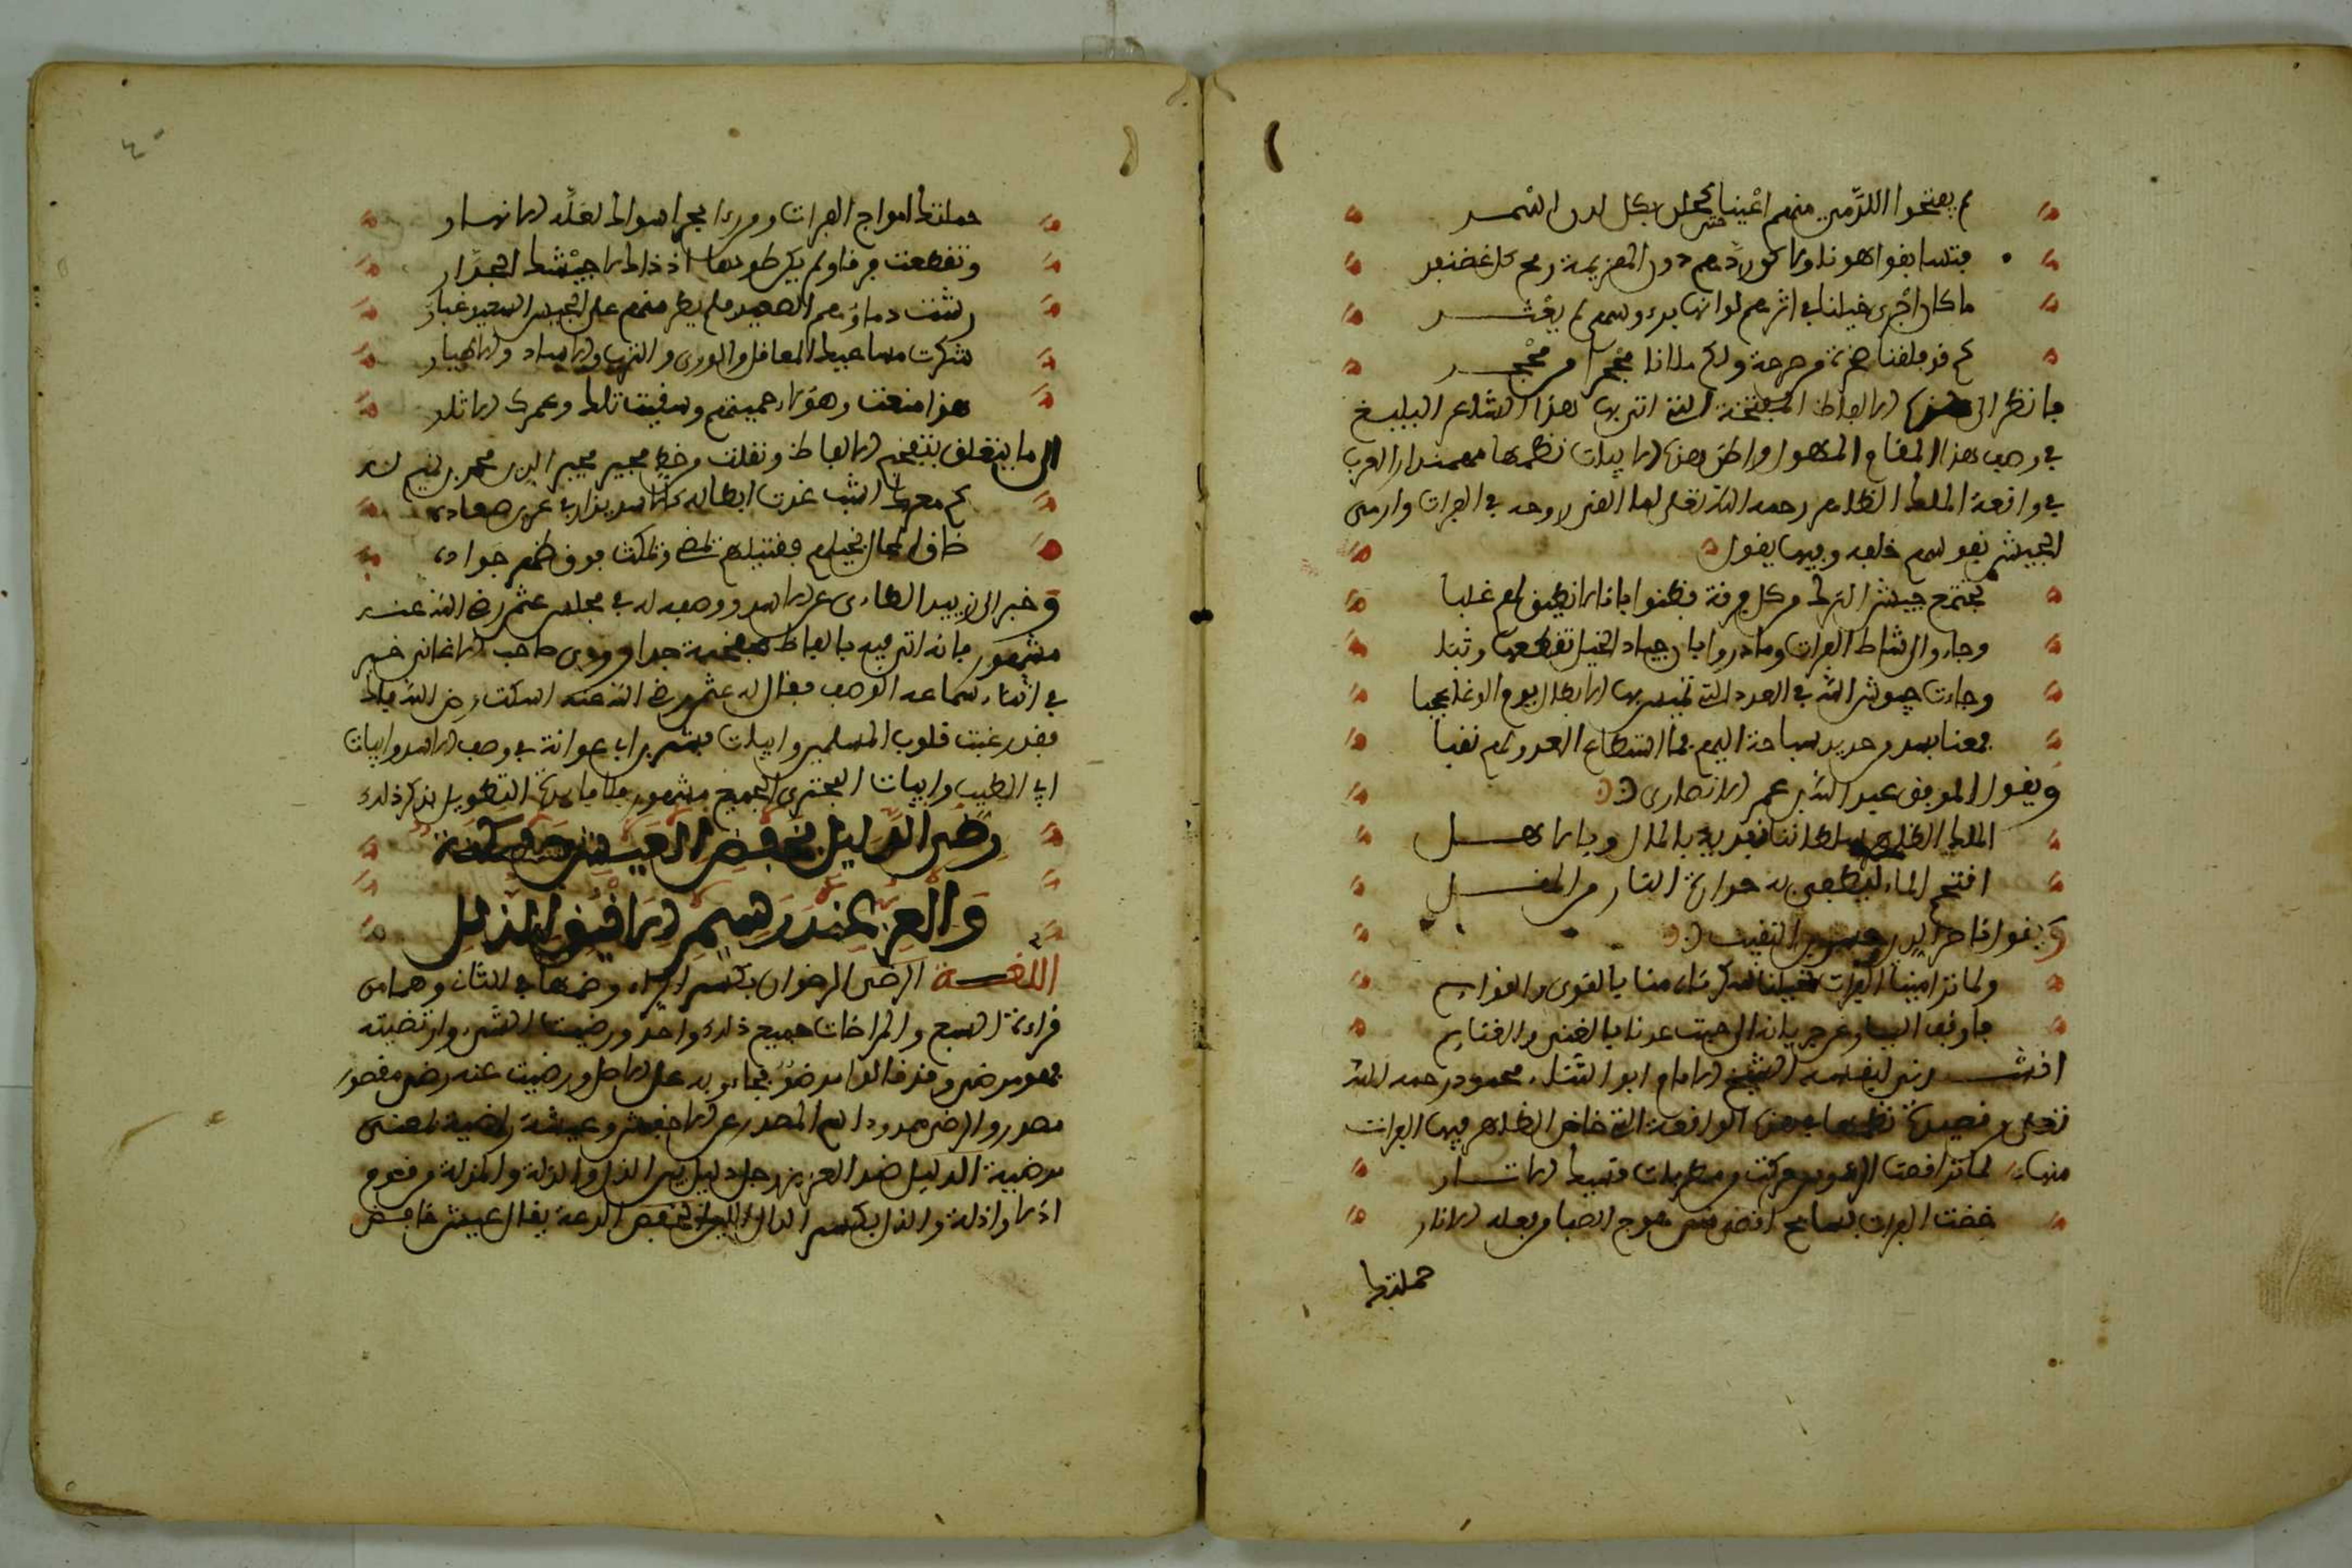 لم يفتحوا للرمي منهم اعينا حتى كحلن بكل لدن اسمر
فتسابقوا هربا ولكن ردهم دون الهزيمة رمح كل غضنفر
ما كان اجرى خيلنا في اثرهم لو انها برءوسهم لم تعثر
كم قد فلقنا صخرة من صرخة ولكم ملانا محجرا من محجر
فانظر الى هذه الالفاظ المفخمة التي اتى بها هذا الشاعر البليغ
في وصف هذا المقام المهول واظن هذه الابيات نظمها مهمندار العرب
في واقعة الملك الظاهر رحمه الله تعالى لما القى روحه في الفرات وارمى
الجيش نفوسهم خلفه وفيها يقول
تجمع جيش الشرك من كل فرقة وظنوا بانا لا نطيق لهم غلبا
وجاءوا الى شاطي الفرات وما دروا بان جياد الخيل تقطعها وثبا
وجاءت جيوش الله في العدد التي تميس بها الابطال يوم الوغا عجبا
فعمنا بسد من حديد سباحة اليهم فما اسطاع العدو لهم نقبا
ويقول الموفق عبد الله بن عمر الانصاري
الملك الظاهر سلطاننا نفديه بالمال وبالاهل
اقتحم الماء ليطفي به حرارة القلب من المغل
ويقول ناصر الدين حسن بن النقيب
ولما ترامينا الفرات بخيلنا سكرناه منا بالقوى والقوايم
فاوقف التيار عن جريانه الى حيث عدنا بالغنى والغنايم
انشدني لنفسه الشيخ الامام ابو الثناء محمود رحمه الله
تعالى من قصيدة نظمها في هذه الواقعة التي خاض الظاهر فيها الفرات
منها لما تراقصت الرءوس وحركت من مطربات قسيك الاوتار
خضت الفرات بسابح اقصى منى هوج الصبا من نعله الاثار
حملتك
حملتك امواج الفرات ومن راى بحرا سواك تقله الانهار
وتقطعت فرقا ولم يك طودها اذ ذاك الا جيشك الجرار
رشت دماؤهم الصعيد فلم يطر منهم على الجيش السعيد غبار
شكرت مساعيك المعاقل والورى والترب والاساد والاطيار
هذي منعت وهؤلاء حميتهم وسقيت تلك وعم ذي الايثار
الى ما يتعلق بتفخيم الالفاظ ونقلت من خط مجير الدين محمد بن تميم له
كم معرك الشهب غدت ابطاله كالاسد يزار في عرين صعاده
ضاق المجال بخيلهم فقتيلهم يمضي ويمكث فوق ظهر جواده
وخبر ابي زبيد الطاءي عن الاسد ووصفه له في مجلس عثمان رضي الله عنه
مشهور فانه اتى فيه بالفاظ مفخمة جدا وروى صاحب الاغاني خبره
في اثناء سماعه الوصف فقال له عثمان رضي الله عنه اسكت رض الله فاك
فقد رعبت قلوب المسلمين وابيات بشر بن ابي عوانة في وصف الاسد وابيات
ابي الطيب وابيات البحتري الجميع مشهور فلا فايدة في التطويل بذكر ذلك
رضى الذليل بخفض العيش مسكنة
والعز عند رسيم الاينق الذلل
اللغة الرضى الرضوان بكسر الراء وضمها في الثاني وهما من
قراءة السبع والمراضات جميع ذلك واحد ورضيت الشيء وارتضيته
فهو مرضي وقد قالوا مرضو فجاءوا به على الاصل ورضيت عنه رضى مقصور
مصدر والرضى ممدود اسم المصدر عن الاخفش وعيشة راضية بمعنى
مرضية الذليل ضد العزيز رجل ذليل بين الذل والذلة والمذلة من قوم
اذلا واذلة والذل بكسر الذال اللين الخفض الدعة يقال عيش خافض